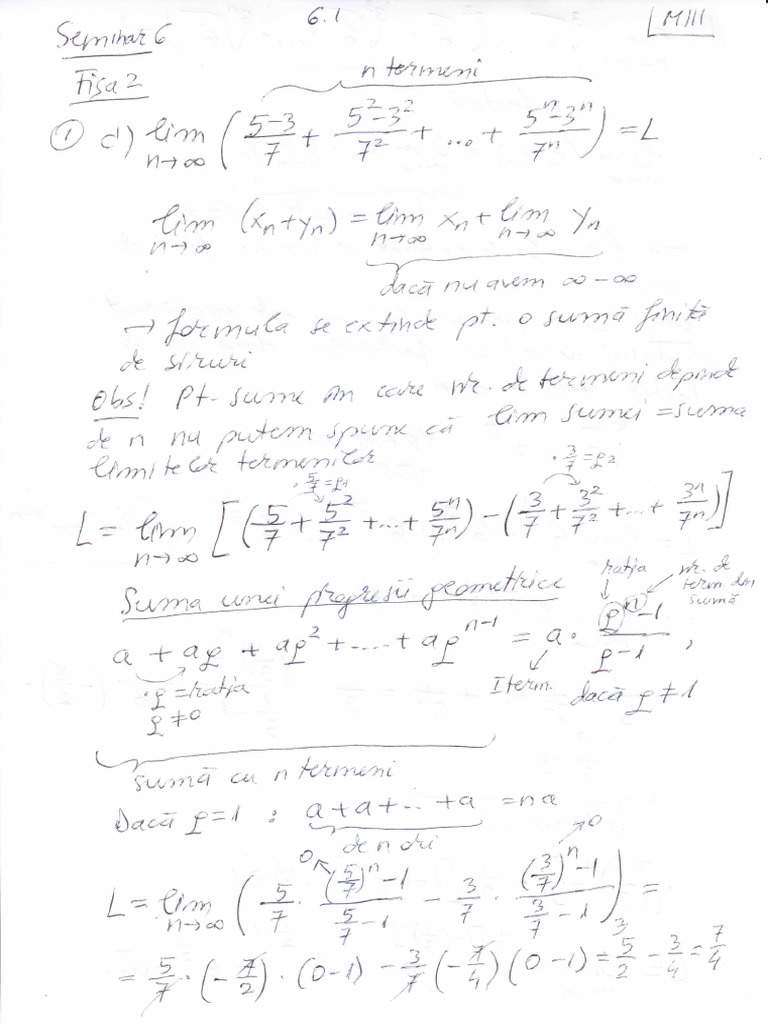 6.1
MIII
Seminar 6
Fișa 2
n termeni
① d) lim n→∞ ( (5-3)/7 + (5²-3²)/7² + ... + (5ⁿ-3ⁿ)/7ⁿ ) = L
lim n→∞ (xₙ+yₙ) = lim n→∞ xₙ + lim n→∞ yₙ
dacă nu avem ∞-∞
→ formula se extinde pt. o sumă finită
de șiruri
Obs! Pt. sume în care nr. de termeni depinde
de n nu putem spune că lim sumei = suma
limitelor termenilor
· 5/7 = q₁ · 3/7 = q₂
L = lim n→∞ [ ( 5/7 + 5²/7² + ... + 5ⁿ/7ⁿ ) - ( 3/7 + 3²/7² + ... + 3ⁿ/7ⁿ ) ]
Suma unei progresii geometrice
rația nr. de term. din sumă
a + aq + aq² + .... + aqⁿ⁻¹ = a · (qⁿ-1)/(q-1) ,
·q = rația I term. dacă q ≠ 1
q ≠ 0
sumă cu n termeni
Dacă q=1 : a + a + ... + a = na
de n ori
0 0
L = lim n→∞ ( 5/7 · ((5/7)ⁿ-1)/(5/7 - 1) - 3/7 · ((3/7)ⁿ-1)/(3/7 - 1) ) =
= 5/7 · (-7/2) · (0-1) - 3/7 (-7/4) (0-1) = 5/2 - 3/4 = 7/4